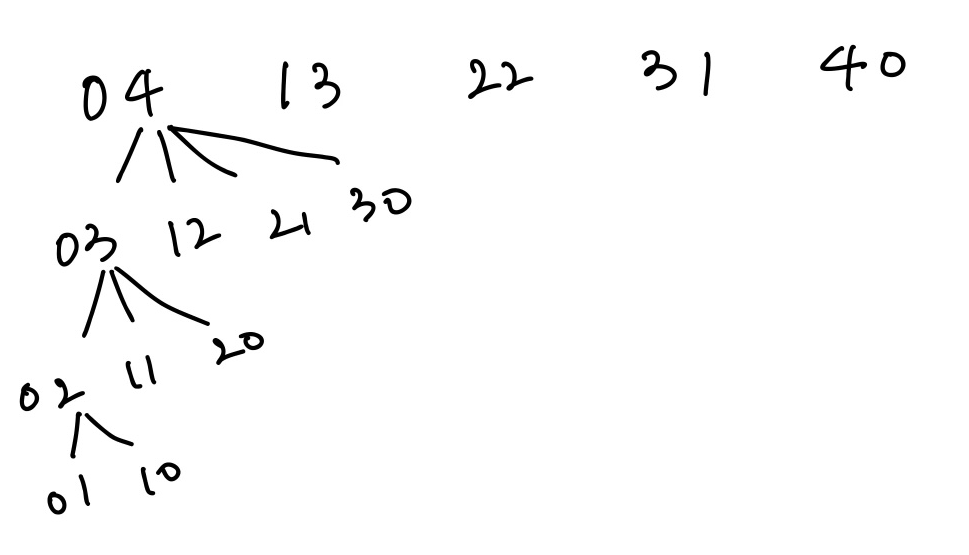 04 13 22 31 40
03 12 21 30
02 11 20
01 10